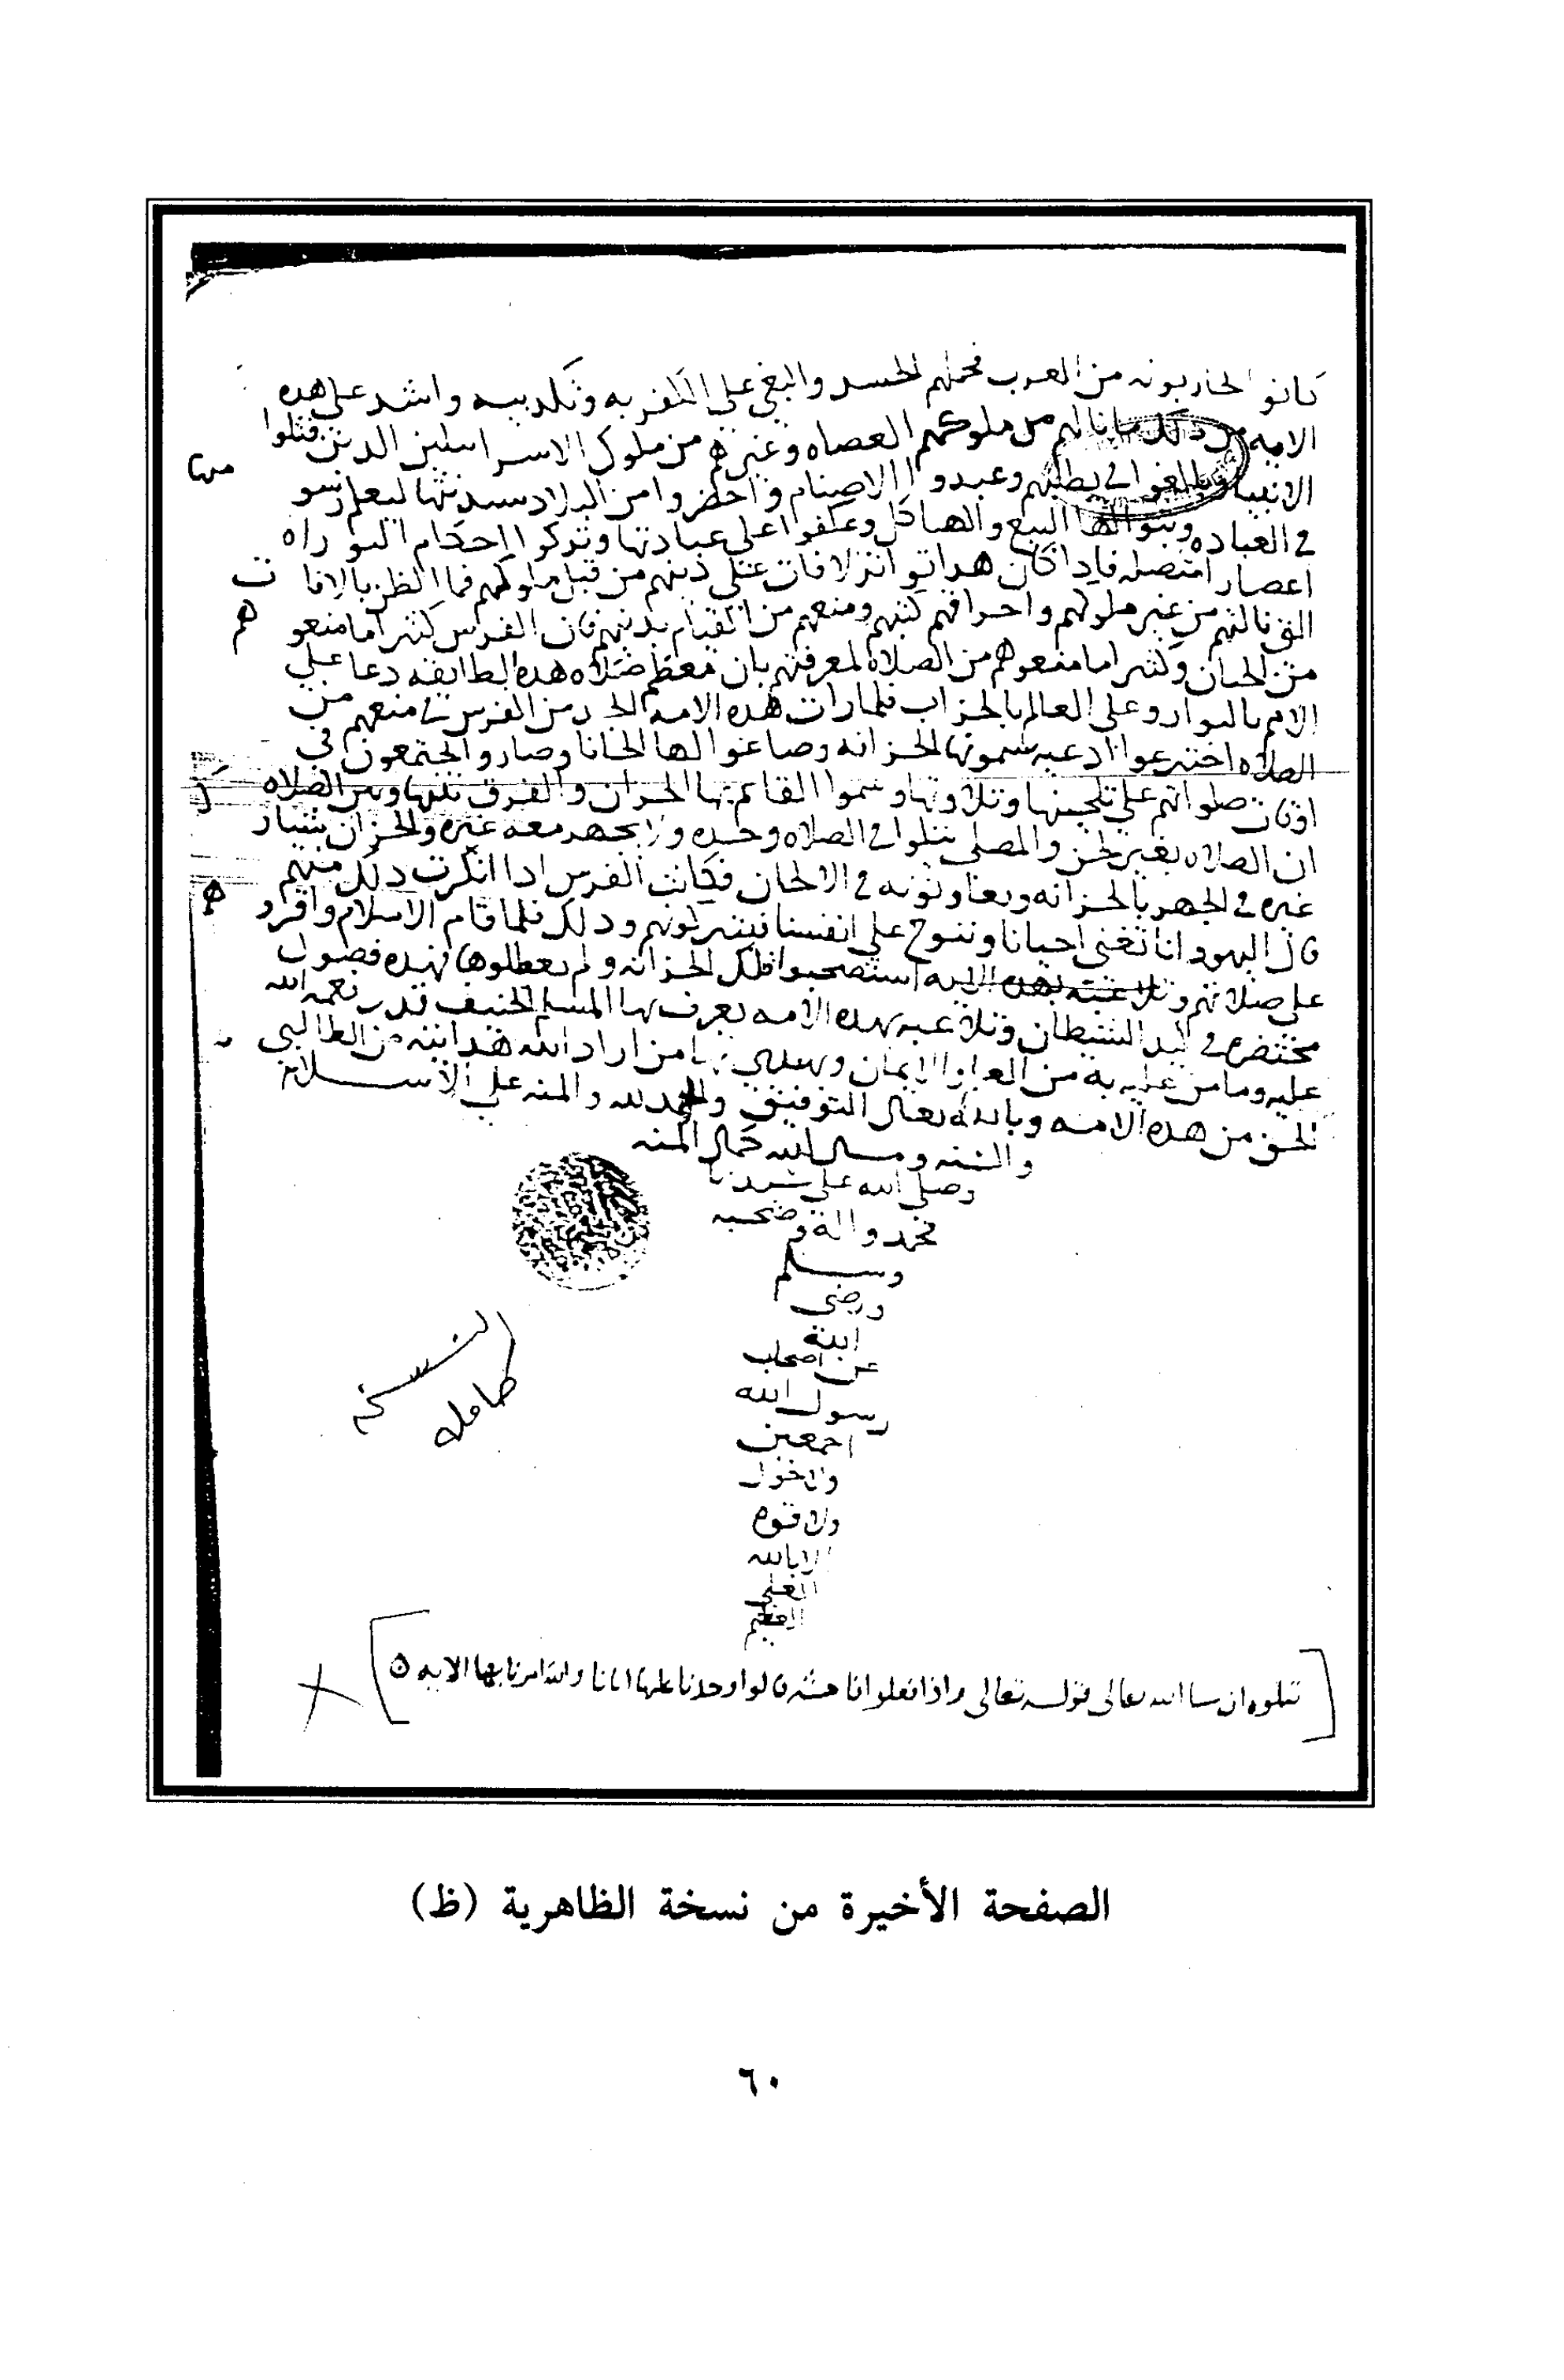 كانو الحاربونه من العرب فحملهم الحسد والبغي على الكفر به وتكديبه واشد على هده
الامه من دلك ما نالهم من ملوكهم العصاه وغيرهم من ملوك الاسراسلين الدين قتلوا
الانبيا وبالغوا في بطلبهم وعبدوا الاصنام واحضروا من البلاد سدنتها لتعلم رسو مها
في العباده وبنوا لها البيع والهياكل وعكفوا على عبادتها وتركوا احكام التوراه
اعصار امتصله فادا كان هدا تواتر الافات على دينهم من قبل ملوكهم فما الظن بالافا ت
التي نالتهم من غير ملوكهم واحراقهم كتبهم ومنعهم من القيام بدينهم فان الفرس كثيرا ما منعو هم
من الختان وكثيرا ما منعوهم من الصلاه لمعرفتهم بان معظم صلاه هده الطايفه دعا على
الامم بالبوار وعلى العالم بالخراب فلما رات هده الامه الجد من الفرس في منعهم من
الصلاه اخترعوا ادعيه سموها الحزانه وصاغوا لها الحانا وصاروا يجتمعون في
اوقات صلواتهم على تلحينها وتلاوتها وسموا القايم بها الحزان والفرق بينها وبين الصلاه
ان الصلاه بغير لحن والمصلي يتلوا في الصلاه وحده ولا يجهر معه غيره والحزان يشار ك
غيره في الجهر بالحزانه ويعاونونه في الالحان فكانت الفرس ادا انكرت دلك منهم
قال اليهود انا نغني احيانا وننوح على انفسنا فيتركونهم ودلك فلما قام الاسلام واقرو هم
على صلاتهم استصحبوا تلك الحزانه ولم يعطلوها فهده فصول
مختصره في كيد الشيطان وتلاعبه بهده الامه يعرف بها المسلم الحنيف قدر نعمه الله
عليه وما من عليه به من العلم والايمان ويهتدي بها من اراد الله هدايته من الطالبي ن
الحق من هده الامه وبالله تعالى التوفيق والحمد لله والمنه على الاسلام
والسنه ونسال الله كمال المنه
وصلى الله على سيدنا
محمد واله وصحبه
وسلم
ورضى
الله
عن اصحاب
رسول الله
اجمعين
ولا حول
ولا قوه
الا بالله
العلي
العظيم
النسخه
كامله
تتلوه ان سا الله تعالى قوله تعالى واذا فعلوا فاحشه قالوا وجدنا عليها ابانا والله امرنا بها الايه ه
الصفحة الأخيرة من نسخة الظاهرية (ظ)
٦٠